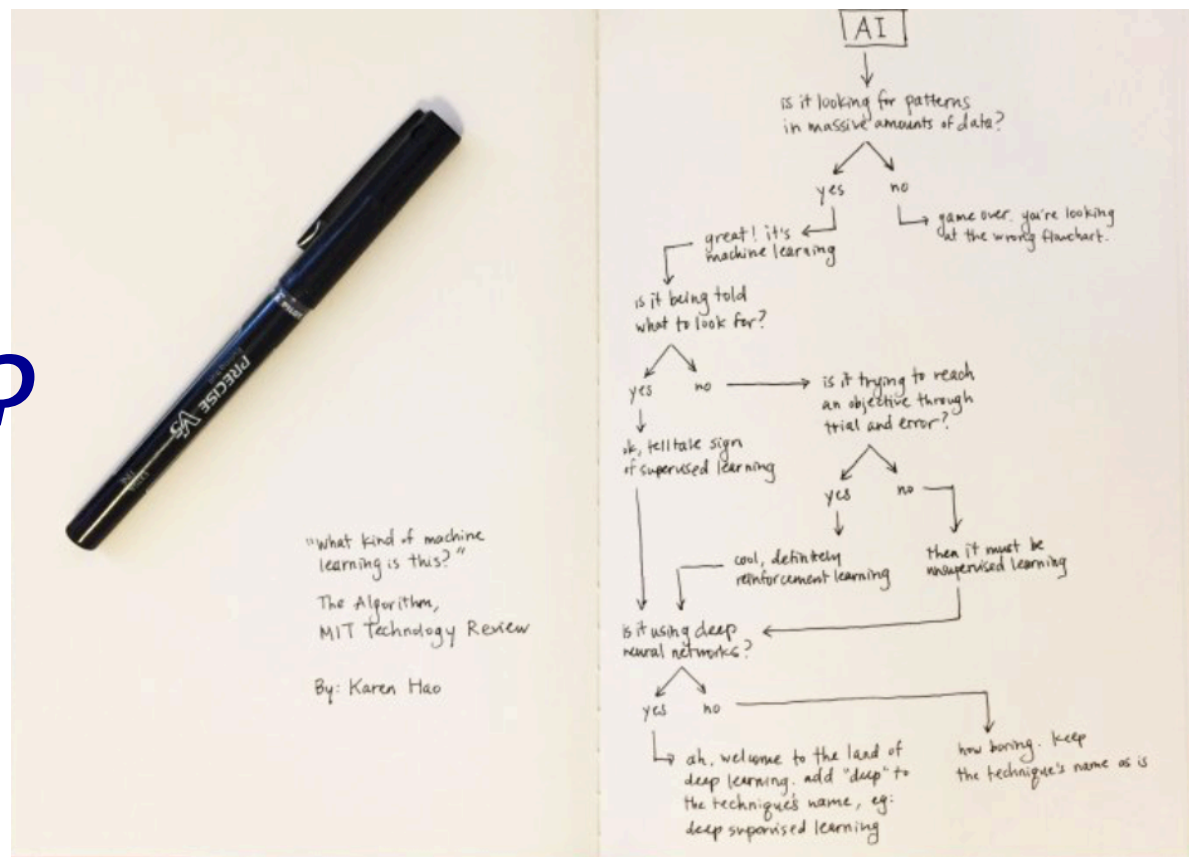 PRECISE V5
"What kind of machine
learning is this?"
The Algorithm,
MIT Technology Review
By: Karen Hao
AI
is it looking for patterns
in massive amounts of data?
yes
no
great! it's
machine learning
game over. you're looking
at the wrong flowchart.
is it being told
what to look for?
yes
no
is it trying to reach
an objective through
trial and error?
ok, telltale sign
of supervised learning
yes
no
cool, definitely
reinforcement learning
then it must be
unsupervised learning
is it using deep
neural networks?
yes
no
ah, welcome to the land of
deep learning. add "deep" to
the technique's name, eg:
deep supervised learning
how boring. keep
the technique's name as is